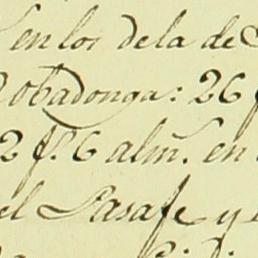 en los de la de
Cobadonga: 26 f
2 f.s 6 alm.s en
el Pasafe y